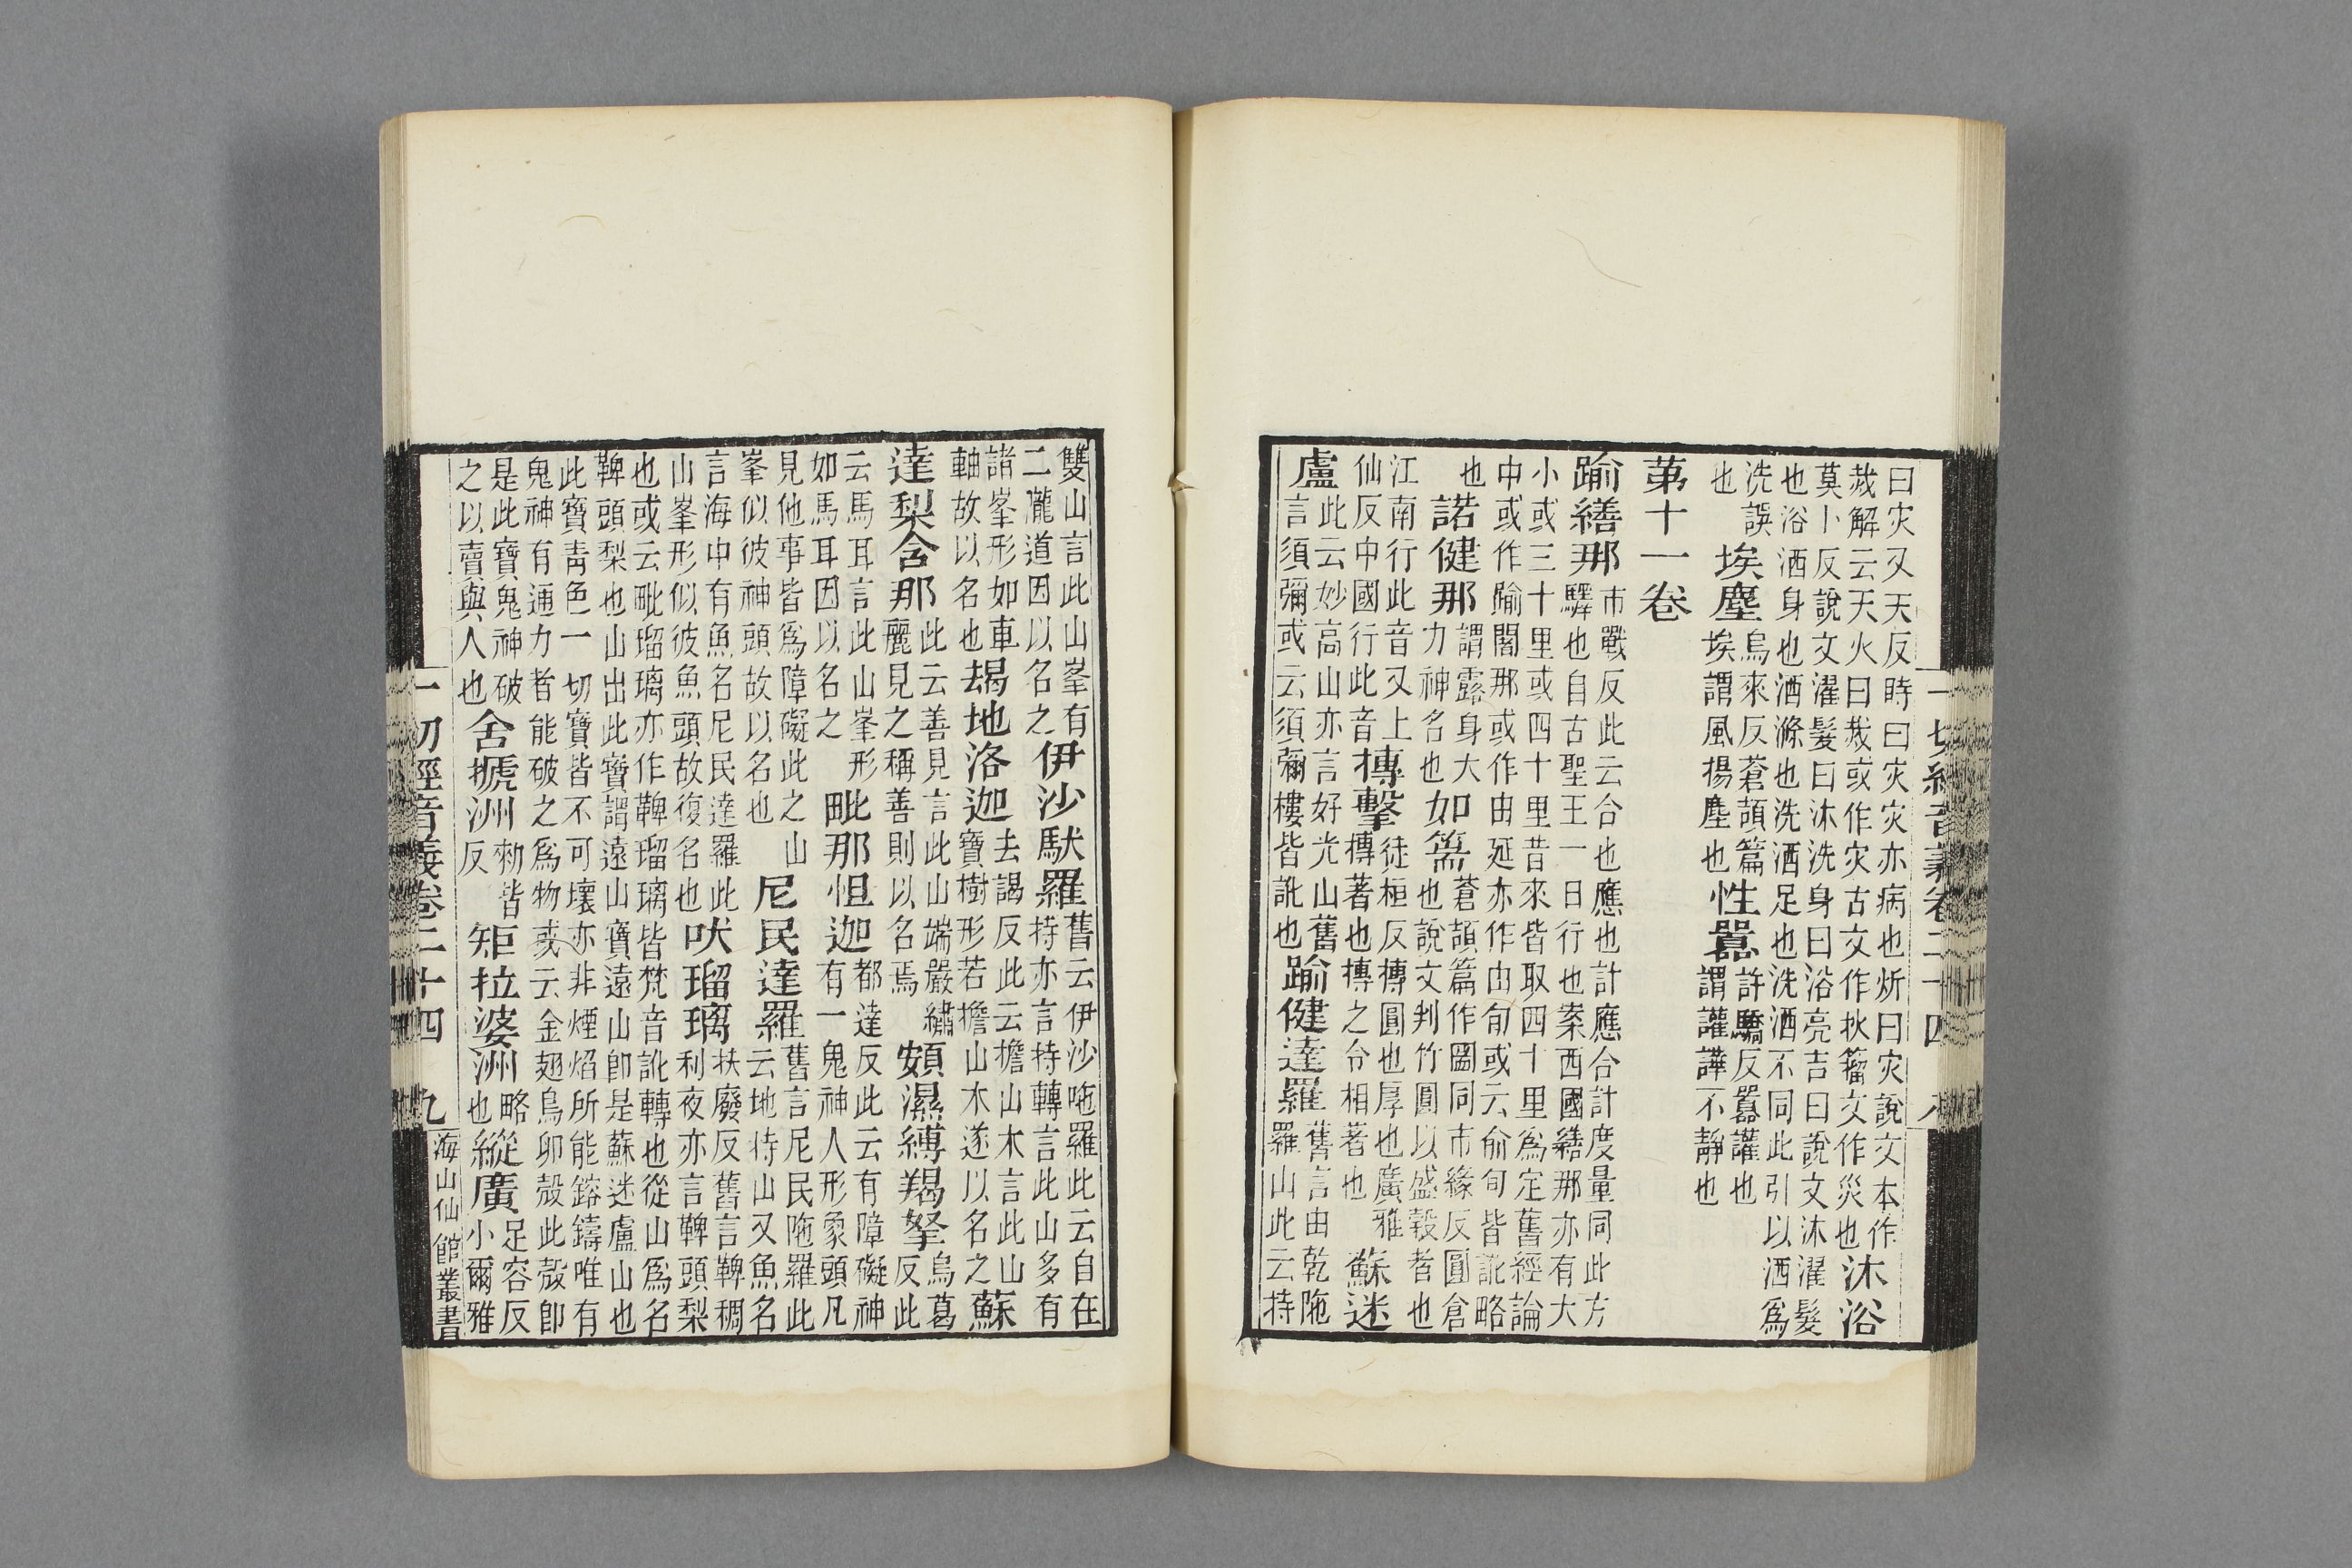 曰灾又天反時曰灾灾亦病也炘曰灾說文本作
烖解云天火曰烖或作灾古文作扻籀文作災也沐浴
莫卜反說文濯髮曰沐洗身曰浴亮吉曰說文沐濯髮
也浴洒身也洒滌也洗洒足也洗洒不同此引以洒爲
洗誤也埃塵烏來反蒼頡篇埃謂風揚塵也性嚚許驕反嚚讙也謂讙譁不靜也
第十一卷
踰繕那市戰反此云合也應也計應合計度量同此方
驛也自古聖王一日行也案西國繕那亦有大
小或三十里或四十里昔來皆取四十里爲定舊經論
中或作踰闍那或作由延亦作由旬或云俞旬皆訛略
也諾健那謂露身大力神名也如篅蒼頡篇作圌同市緣反圓倉也說文判竹圓以盛穀者也
江南行此音又上仙反中國行此音摶擊徒桓反摶圓也厚也廣雅摶著也摶之令相著也蘇迷
盧此云妙高山亦言好光山舊言須彌或云須彌樓皆訛也踰健達羅舊言由乾陁羅山此云持
一切經音義卷二十四 八
雙山言此山峯有二隴道因以名之伊沙馱羅舊云伊沙陁羅此云自在持亦言持轉言此山多有
諸峯形如車軸故以名也朅地洛迦去謁反此云擔山木言此山寶樹形若擔山木遂以名之蘇
達梨舍那此云善見言此山端嚴繡麗見之稱善則以名焉頞濕縛羯拏烏葛反此
云馬耳言此山峯形如馬耳因以名之毗那怛迦都達反此云有障礙神有一鬼神人形象頭凡
見他事皆爲障礙此之山峯似彼神頭故以名也尼民達羅舊言尼民陁羅此云地持山又魚名
言海中有魚名尼民達羅此山峯形似彼魚頭故復名也吠瑠璃扶廢反舊言鞞稠利夜亦言鞞頭梨
也或云毗瑠璃亦作鞞瑠璃皆梵音訛轉也從山爲名
鞞頭梨也山出此寶謂遠山寶遠山卽是蘇迷盧山也
此寶靑色一切寶皆不可壞亦非煙焰所能鎔鑄唯有
鬼神有通力者能破之爲物或云金翅鳥卵殼此殼卽
是此寶鬼神破之以賣與人也舍搋洲勑皆反矩拉婆洲略也縱廣足容反小爾雅
一切經音義卷二十四 九 海山仙館叢書